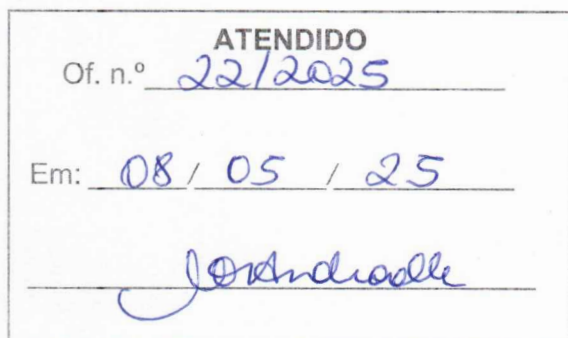 ATENDIDO
Of. n.º 22/2025
Em: 08 / 05 / 25